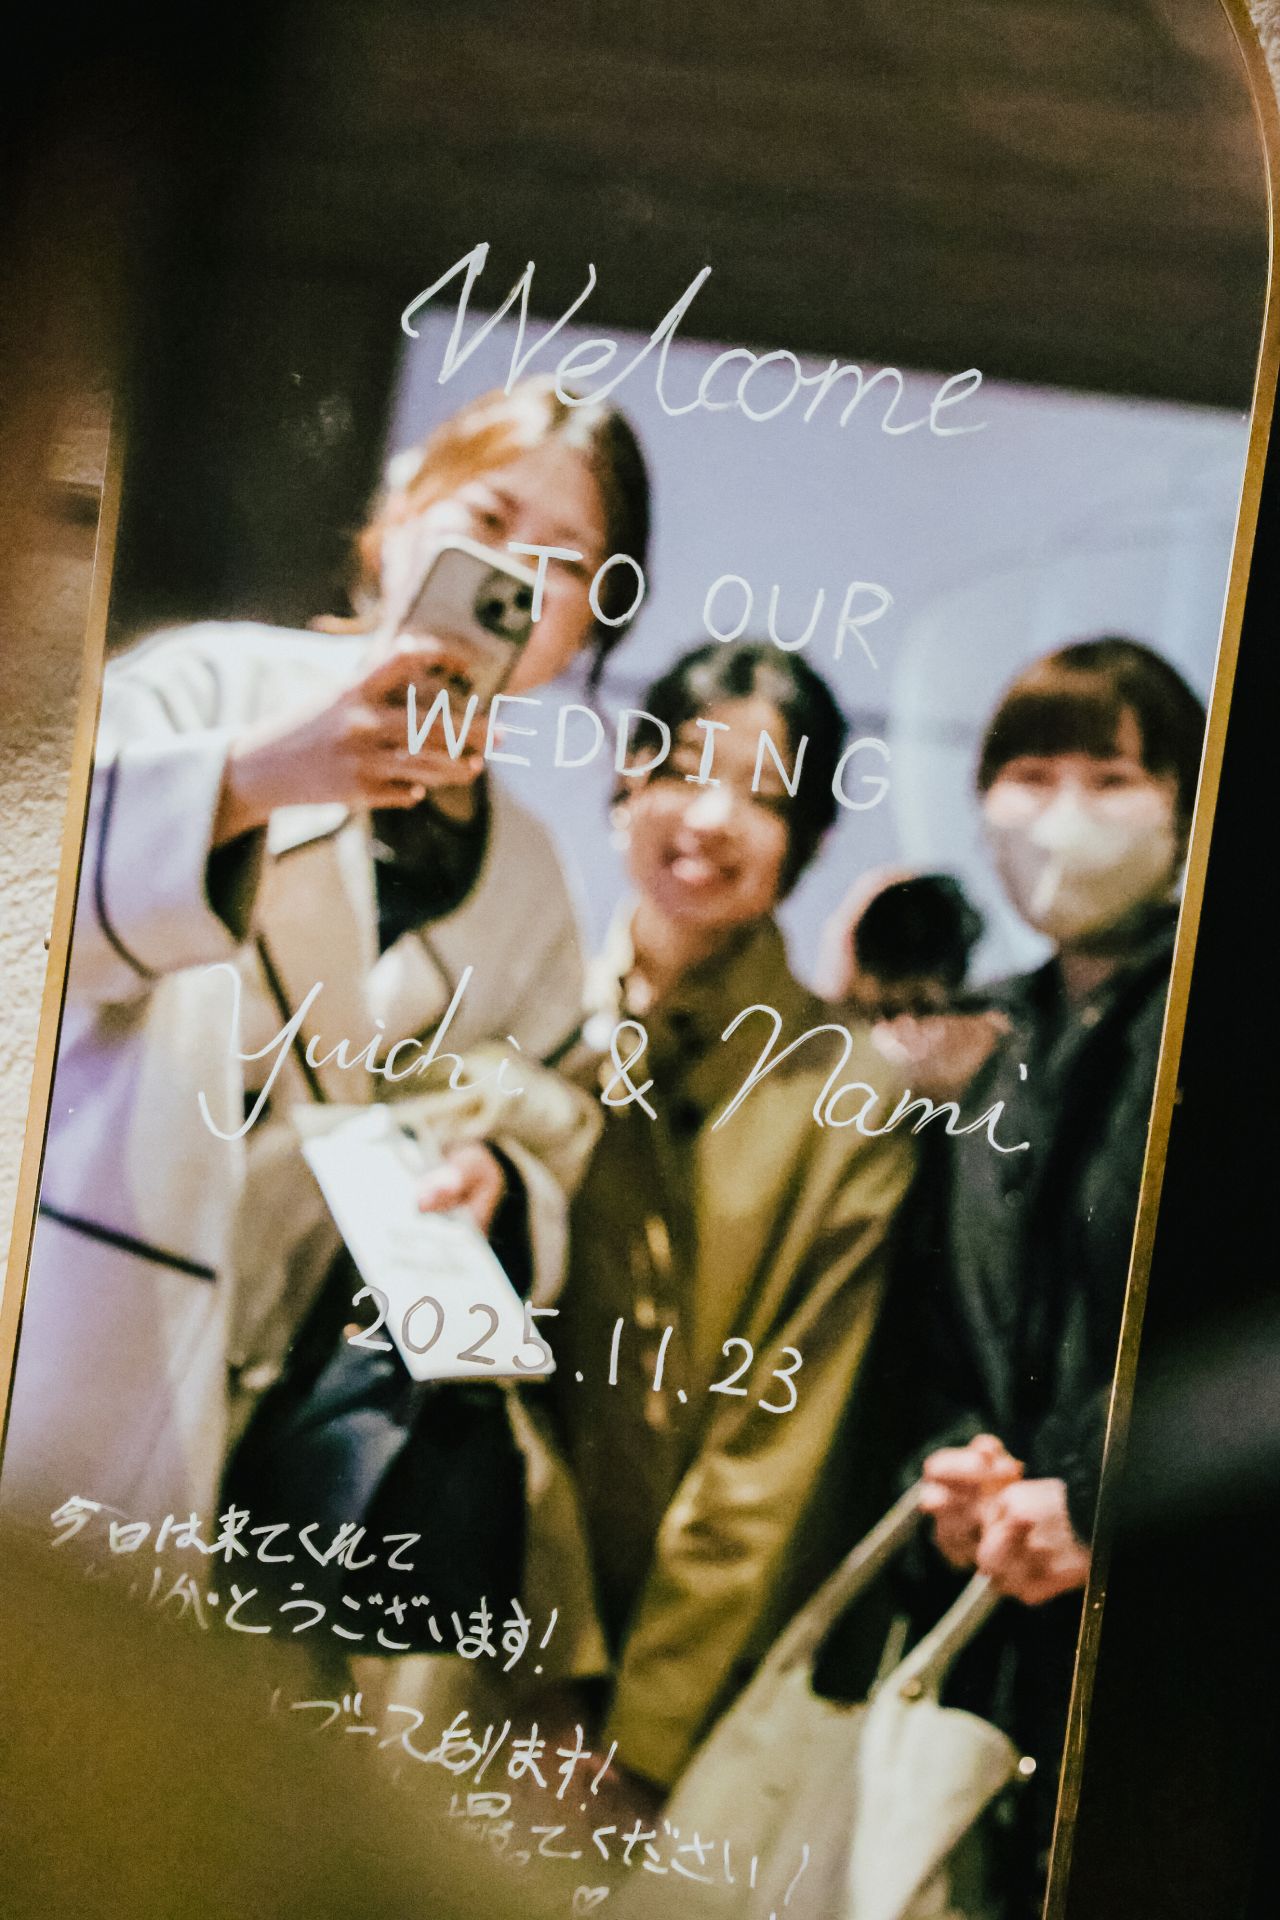 Welcome
TO OUR
WEDDING
Yuichi & Nami
2025.11.23
今日は来てくれて
りがとうございます!
ブースあります!
撮ってください!
♡